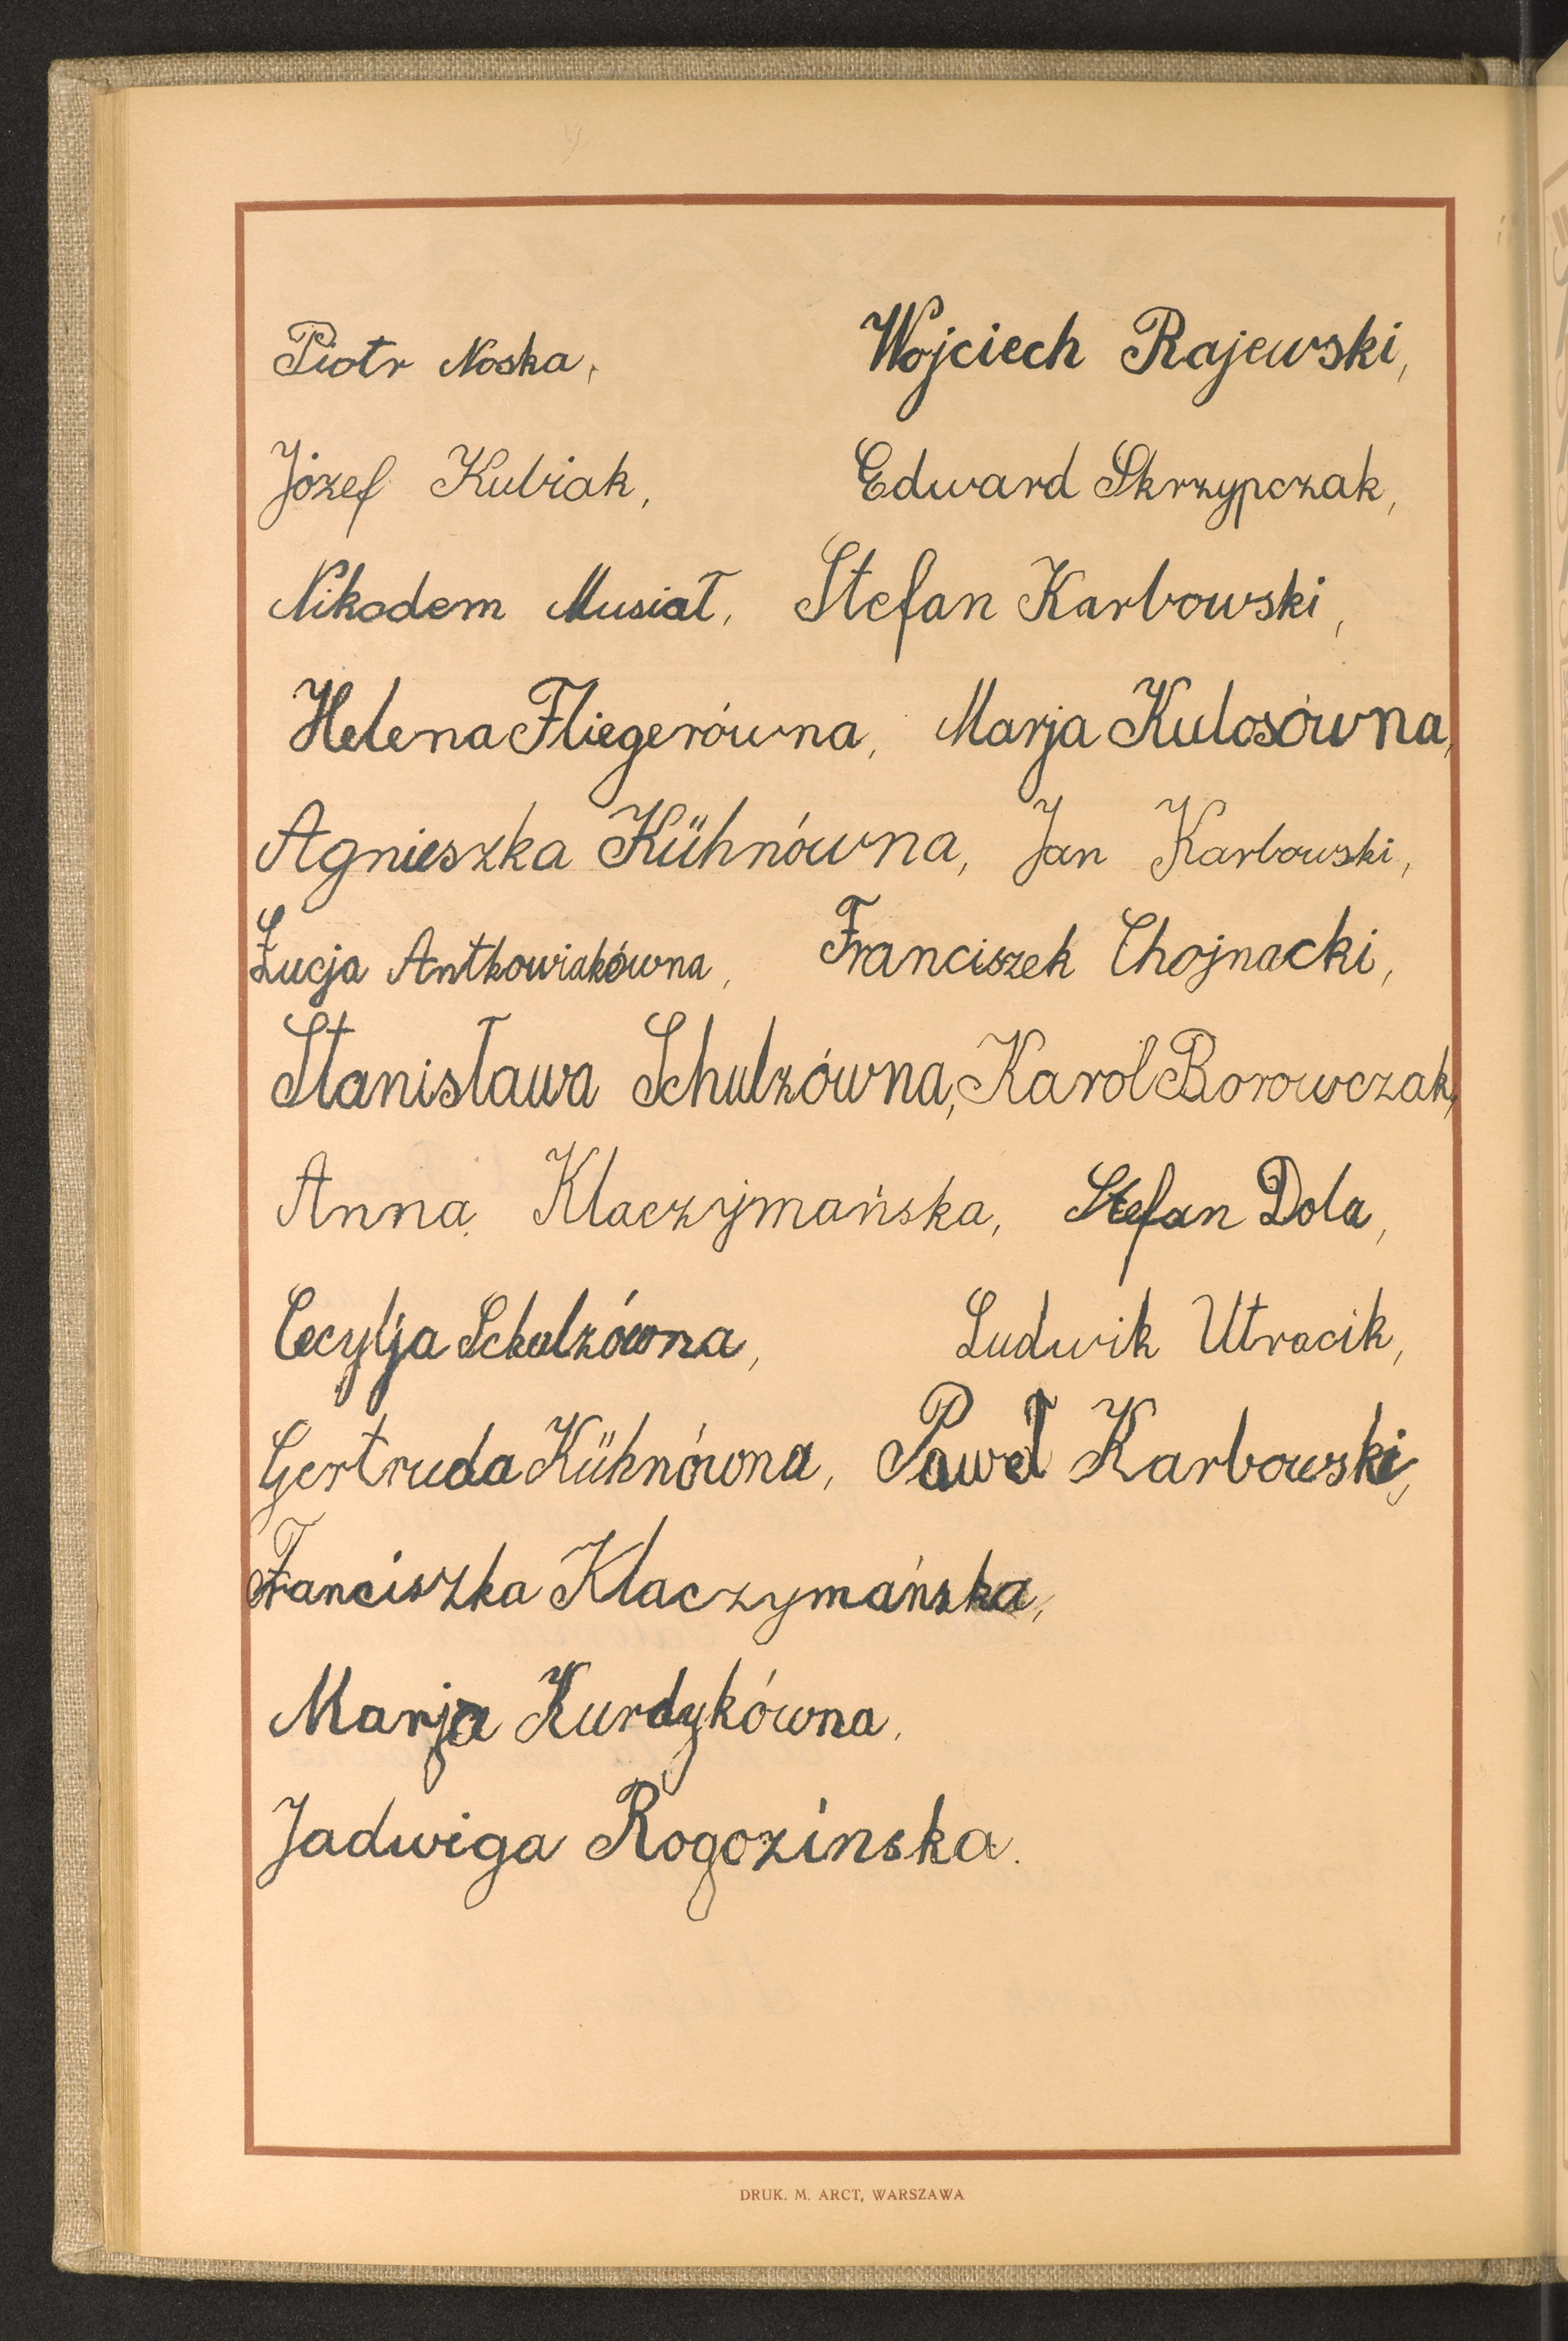 Piotr Noska, Wojciech Rajewski,
Józef Kubiak, Edward Skrzypczak,
Nikodem Musiał, Stefan Karbowski,
Helena Fliegerówna, Marja Kulosówna,
Agnieszka Kühnówna, Jan Karbowski,
Łucja Antkowiakówna, Franciszek Chojnacki,
Stanisława Schulzówna, Karol Borowczak,
Anna Klaczyjmańska, Stefan Dola,
Cecylja Schulzówna, Ludwik Utracik,
Gertruda Kühnówna, Paweł Karbowski,
Franciszka Klaczymańska,
Marja Kurdykówna.
Jadwiga Rogozinska.
DRUK. M. ARCT, WARSZAWA